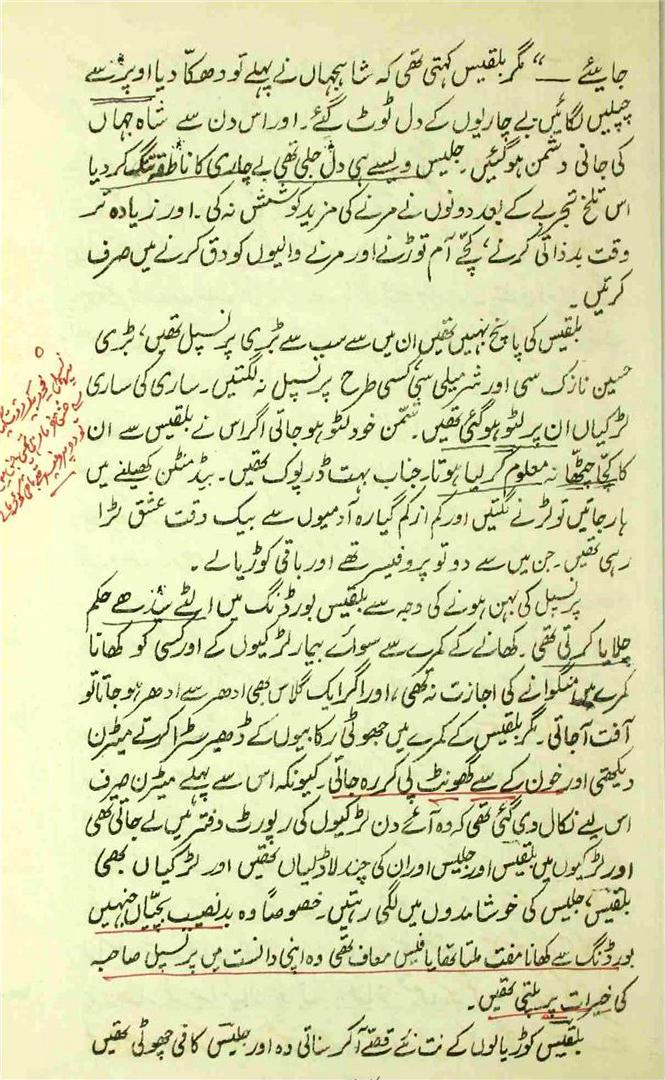 جایئے — “ مگر بلقیس کہتی تھی کہ شاہجہاں نے پہلے تو دھکا دیا اوپر سے
چپلیں لگائیں بے چاریوں کے دل ٹوٹ گئے۔ اور اس دن سے شاہ جہاں
کی جانی دشمن ہو گئیں۔ جلیس ویسے ہی دل جلی تھی بے چاری کا ناطقہ تنگ کر دیا
اس تلخ تجربے کے بعد دونوں نے مرنے کی مزید کوشش نہ کی۔ اور زیادہ تر
وقت بدذاتی کرنے، کچے آم توڑنے اور مرنے والیوں کو دق کرنے میں صرف
کرتیں۔
بلقیس کی پانچ بہنیں تھیں ان میں سے سب سے بڑی پرنسپل تھیں، بڑی
حسین نازک سی اور شرمیلی سی کسی طرح پرنسپل نہ لگتیں۔ ساری کی ساری
لڑکیاں ان پر لٹو ہو گئی تھیں۔ شمن خود لٹو ہو جاتی اگر اس نے بلقیس سے ان
کا کچا چٹھا نہ معلوم کر لیا ہوتا۔ جناب بہت ڈرپوک تھیں۔ بیڈ منٹن کھیلنے میں
ہار جاتیں تو لڑنے لگتیں اور کم از کم گیارہ آدمیوں سے بیک وقت عشق لڑا
رہی تھیں۔ جن میں سے دو تو پروفیسر تھے اور باقی کوڑیالے۔
پرنسپل کی بہن ہونے کی وجہ سے بلقیس بورڈنگ میں الٹے سیدھے حکم
چلایا کرتی تھی۔ کھانے کے کمرے سے سوائے بیمار لڑکیوں کے اور کسی کو کھانا
کمرے میں منگوانے کی اجازت نہ تھی، اور اگر ایک گلاس بھی ادھر سے ادھر ہو جاتا تو
آفت آ جاتی۔ مگر بلقیس کے کمرے میں جھوٹی رکابیوں کے ڈھیر سڑا کرتے میٹرن
دیکھتی اور خون کے سے گھونٹ پی کر رہ جاتی۔ کیونکہ اس سے پہلے میٹرن صرف
اس لیے نکال دی گئی تھی کہ وہ آئے دن لڑکیوں کی رپورٹ دفتر میں لے جاتی تھی
اور لڑکیوں میں بلقیس اور جلیس اور ان کی چند لاڈلیاں تھیں اور لڑکیاں بھی
بلقیس، جلیس کی خوشامدوں میں لگی رہتیں۔ خصوصاً وہ بدنصیب بچیاں جنہیں
بورڈنگ سے کھانا مفت ملتا تھا یا فیس معاف تھی وہ اپنی دانست میں پرنسپل صاحبہ
کی خیرات پر پلتی تھیں۔
بلقیس کوڑیالوں کے نت نئے قصے آ کر سناتی وہ اور جلیس کافی چھوٹی تھیں